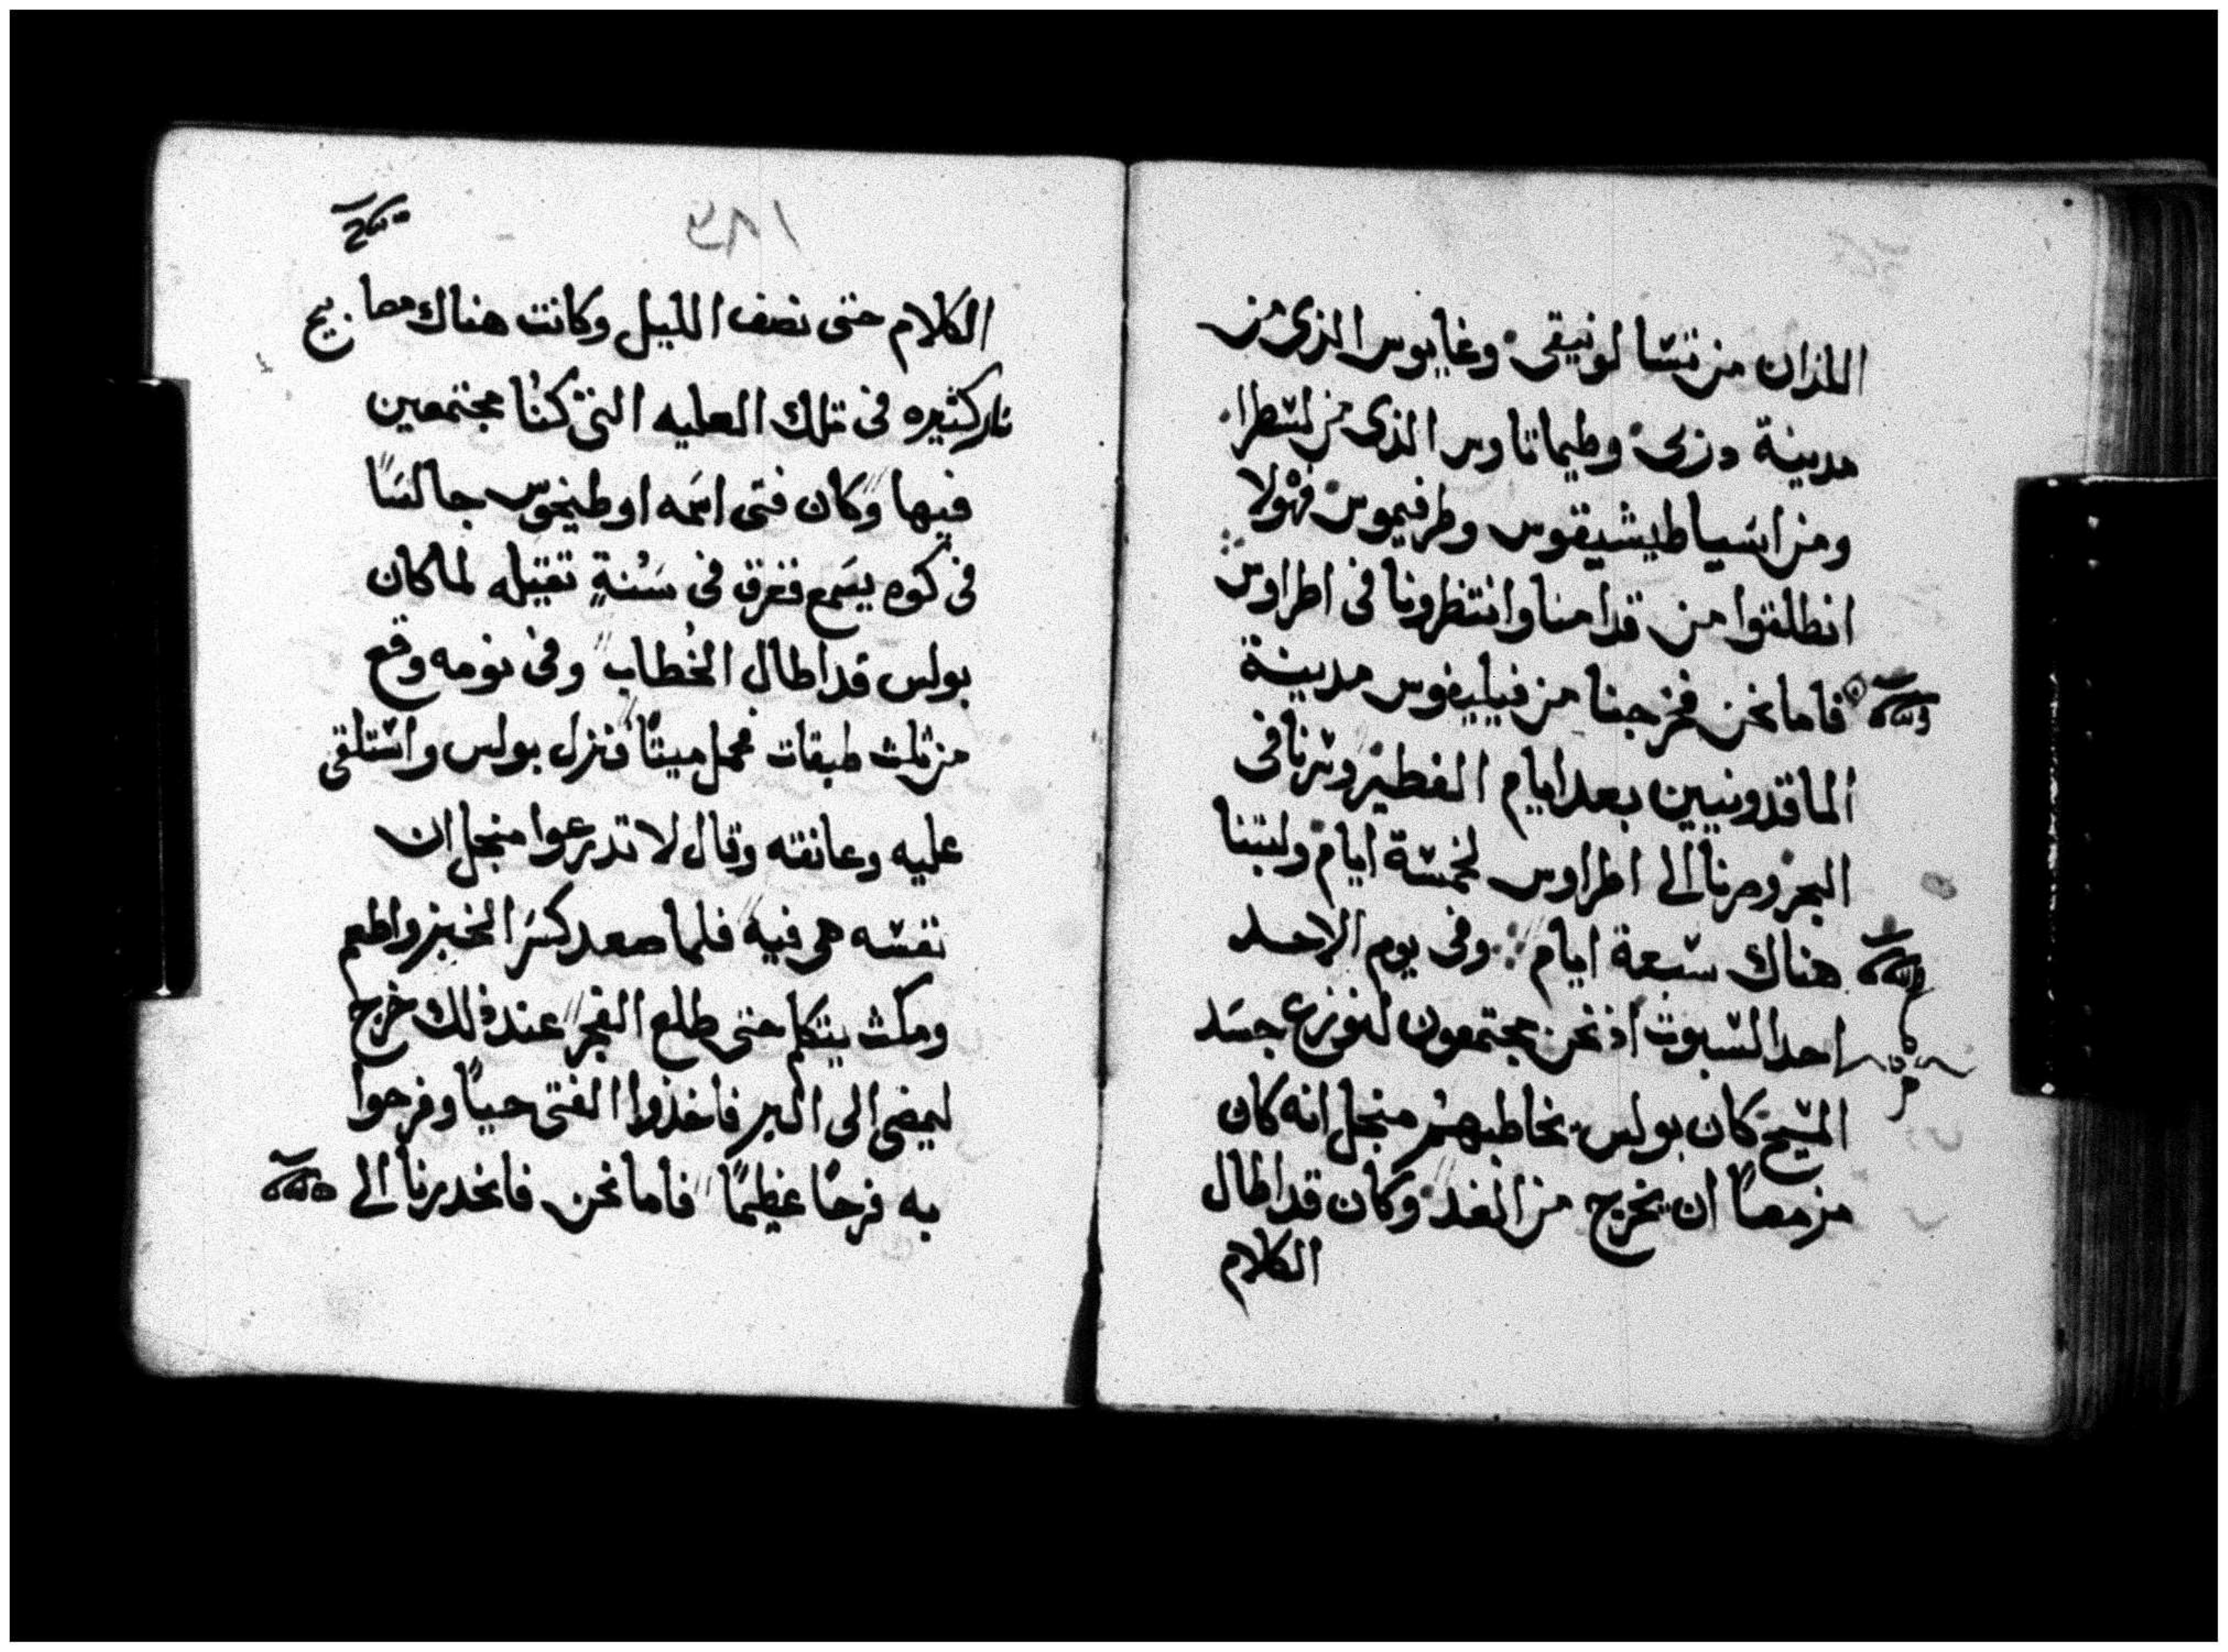 اللذان من تسالونيقى وغايوس الذى من
مدينة دزبى وطيماتاوس الذى من لسطرا
ومن اسيا طيشيقوس وطرفيموس فهولا
انطلقوا من قدامنا وانتظرونا فى اطراوس
فاما نحن فخرجنا من فيليفوس مدينة
الماقدونيين بعد ايام الفطير وسرنا فى
البحر وصرنا الى اطراوس لخمسة ايام ولبثنا
هناك سبعة ايام وفى يوم الاحد
احد السبوت اذ نحن مجتمعون لنوزع جسد
المسيح كان بولس يخاطبهم منجل انه كان
مزمعاً ان يخرج من الغد وكان قد اطال
الكلام
الكلام حتى نصف الليل وكانت هناك مصابيح
نار كثيره فى تلك العليه التى كنا مجتمعين
فيها وكان فتى اسمه اوطيخوس جالسًا
فى كوه يسمع فغرق فى سنةٍ تقيله لما كان
بولس قد اطال الخُطاب وفى نومه وقع
من ثلث طبقات فحمل ميتًا فنزل بولس واستلقى
عليه وعانقه وقال لا تدعروا منجل ان
نفسه هى فيه فلما صعد كسر الخبز واطعم
ومكث يتكلم حتى طلع الفجر عند ذلك خرج
ليمضى الى البر فاخذوا الفتى حيًا وفرحوا
به فرحًا عظيمًا فاما نحن فانحدرنا الى